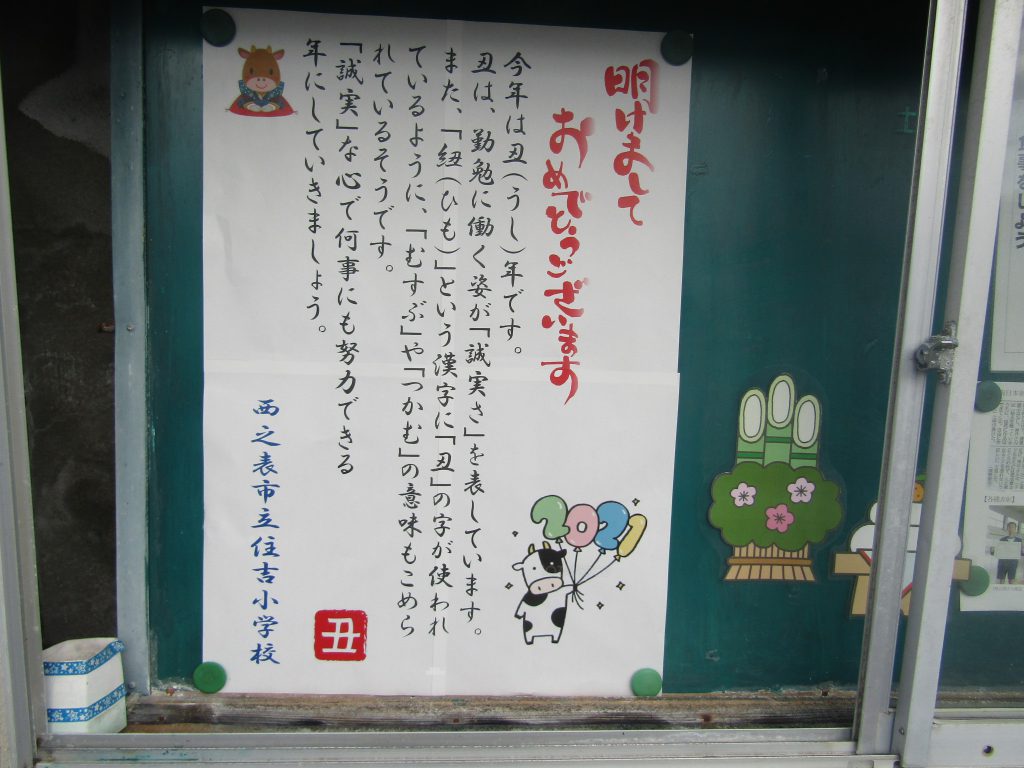 明けまして
おめでとうございます
今年は丑(うし)年です。
丑は、勤勉に働く姿が「誠実さ」を表しています。
また、「紐(ひも)」という漢字に「丑」の字が使われ
ているように、「むすぶ」や「つかむ」の意味もこめら
れているそうです。
「誠実」な心で何事にも努力できる
年にしていきましょう。
西之表市立住吉小学校
丑
2021